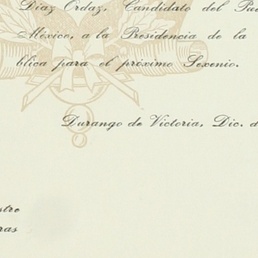 Díaz Ordaz, Candidato del
México, a la Presidencia de la
blica para el próximo Sexenio.
Durango de Victoria, Dic. d
stre
ras